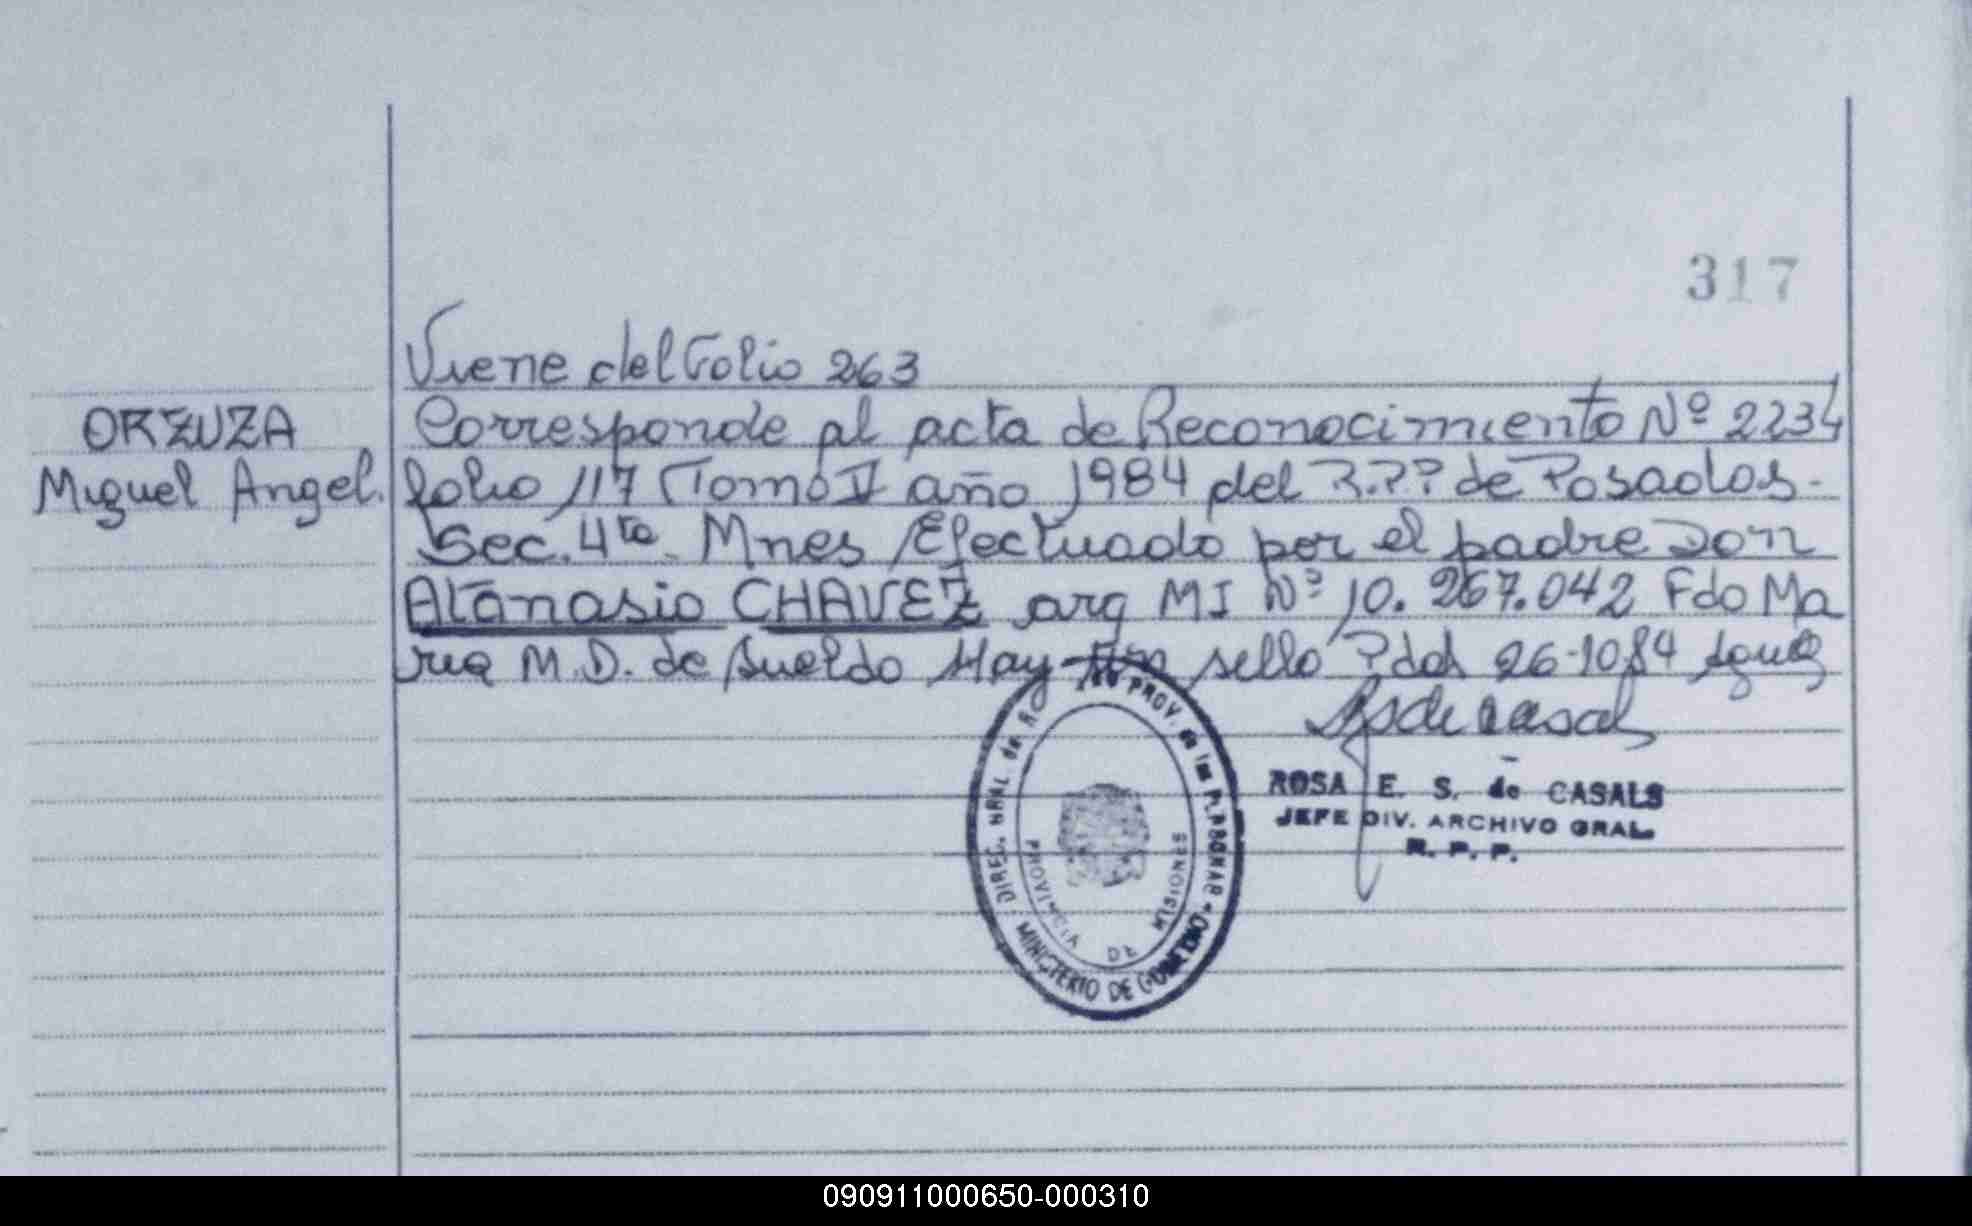 317
Viene del folio 263
ORZUZA
Miguel Angel.
Corresponde al acta de Reconocimiento Nº 2234
folio 117 Tomo II año 1984 del R.P.P de Posadas.
Sec. 4ta. Mnes Efectuado por el padre Don
Atanasio CHAVEZ arg MI Nº 10.267.042 Fdo Ma
ria M.D. de Sueldo Hay un sello Pdas 26-10-84
ROSA E. S. de CASALS
JEFE DIV. ARCHIVO GRAL.
R. P. P.
DIREC. GRAL. de PROV. de las PERSONAS
MINISTERIO DE GOBIERNO
PROVINCIA DE MISIONES
090911000650-000310